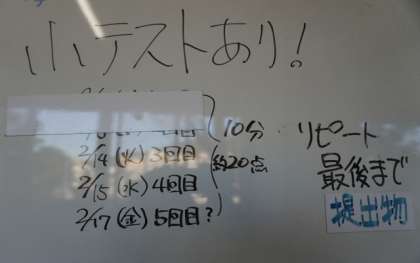 小テストあり!
10分
リピート
2/14(火)3回目
約20点
最後まで
2/15(水)4回目
2/17(金)5回目?
提出物